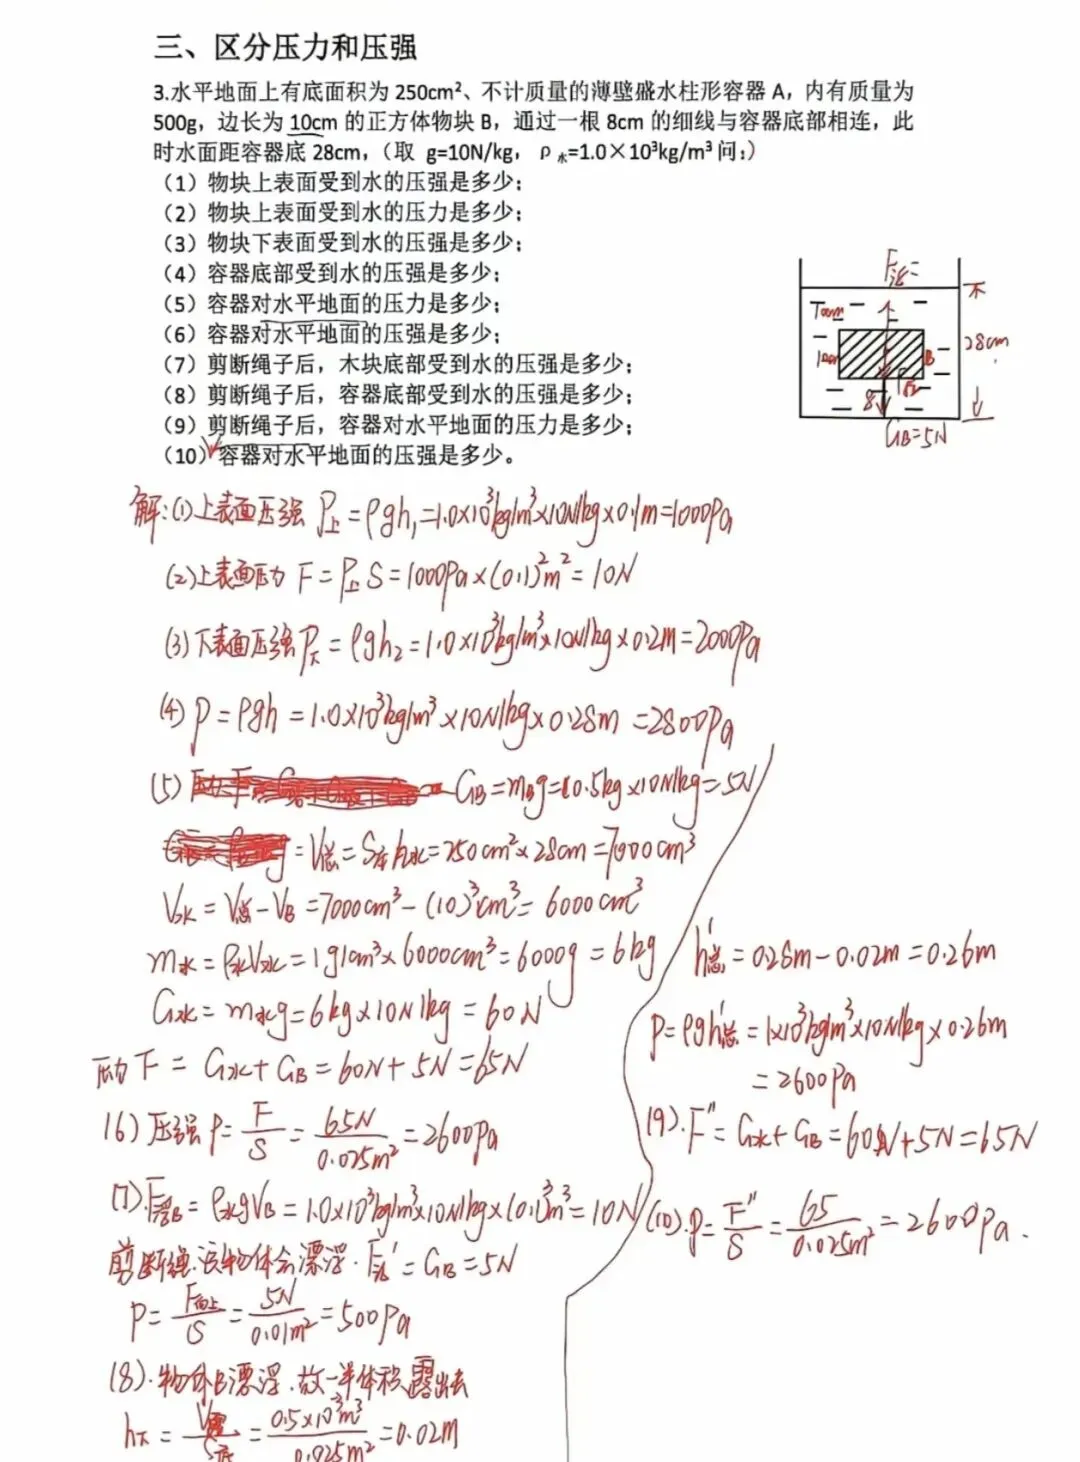 三、区分压力和压强
3.水平地面上有底面积为 250cm²、不计质量的薄壁盛水柱形容器 A，内有质量为
500g，边长为 10cm 的正方体物块 B，通过一根 8cm 的细线与容器底部相连，此
时水面距容器底 28cm，（取 g=10N/kg，ρ水=1.0×10³kg/m³ 问：）
（1）物块上表面受到水的压强是多少；
（2）物块上表面受到水的压力是多少；
（3）物块下表面受到水的压强是多少；
（4）容器底部受到水的压强是多少；
（5）容器对水平地面的压力是多少；
（6）容器对水平地面的压强是多少；
（7）剪断绳子后，木块底部受到水的压强是多少；
（8）剪断绳子后，容器底部受到水的压强是多少；
（9）剪断绳子后，容器对水平地面的压力是多少；
（10）容器对水平地面的压强是多少。
F浮=
10cm
10cm
B
28cm
8
GB=5N
解：(1)上表面压强 P上=ρgh₁=1.0×10³kg/m³×10N/kg×0.1m=1000Pa
(2)上表面压力 F=P上S=1000Pa×(0.1)²m²=10N
(3)下表面压强P下=ρgh₂=1.0×10³kg/m³×10N/kg×0.2m=2000Pa
(4) P=ρgh=1.0×10³kg/m³×10N/kg×0.28m=2800Pa
(5) GB=mBg=0.5kg×10N/kg=5N
=V总=S容h水=250cm²×28cm=7000cm³
V水=V总-VB=7000cm³-(10)³cm³=6000cm³
m水=ρ水V水=1g/cm³×6000cm³=6000g=6kg
G水=m水g=6kg×10N/kg=60N
压力 F=G水+GB=60N+5N=65N
(6) 压强P=F/S=65N/0.025m²=2600Pa
(7).F浮B=ρ水gVB=1.0×10³kg/m³×10N/kg×(0.1)³m³=10N
剪断绳.该物体会漂浮.F浮'=GB=5N
P=F向上/S=5N/0.01m²=500Pa
(8).物体B漂浮.故一半体积露出去
h下=V露/S底=0.5×10⁻³m³/0.025m²=0.02m
h总'=0.28m-0.02m=0.26m
P=ρgh总'=1×10³kg/m³×10N/kg×0.26m
=2600Pa
(9).F''=G水+GB=60N+5N=65N
(10).P=F''/S=65/0.025m²=2600Pa.